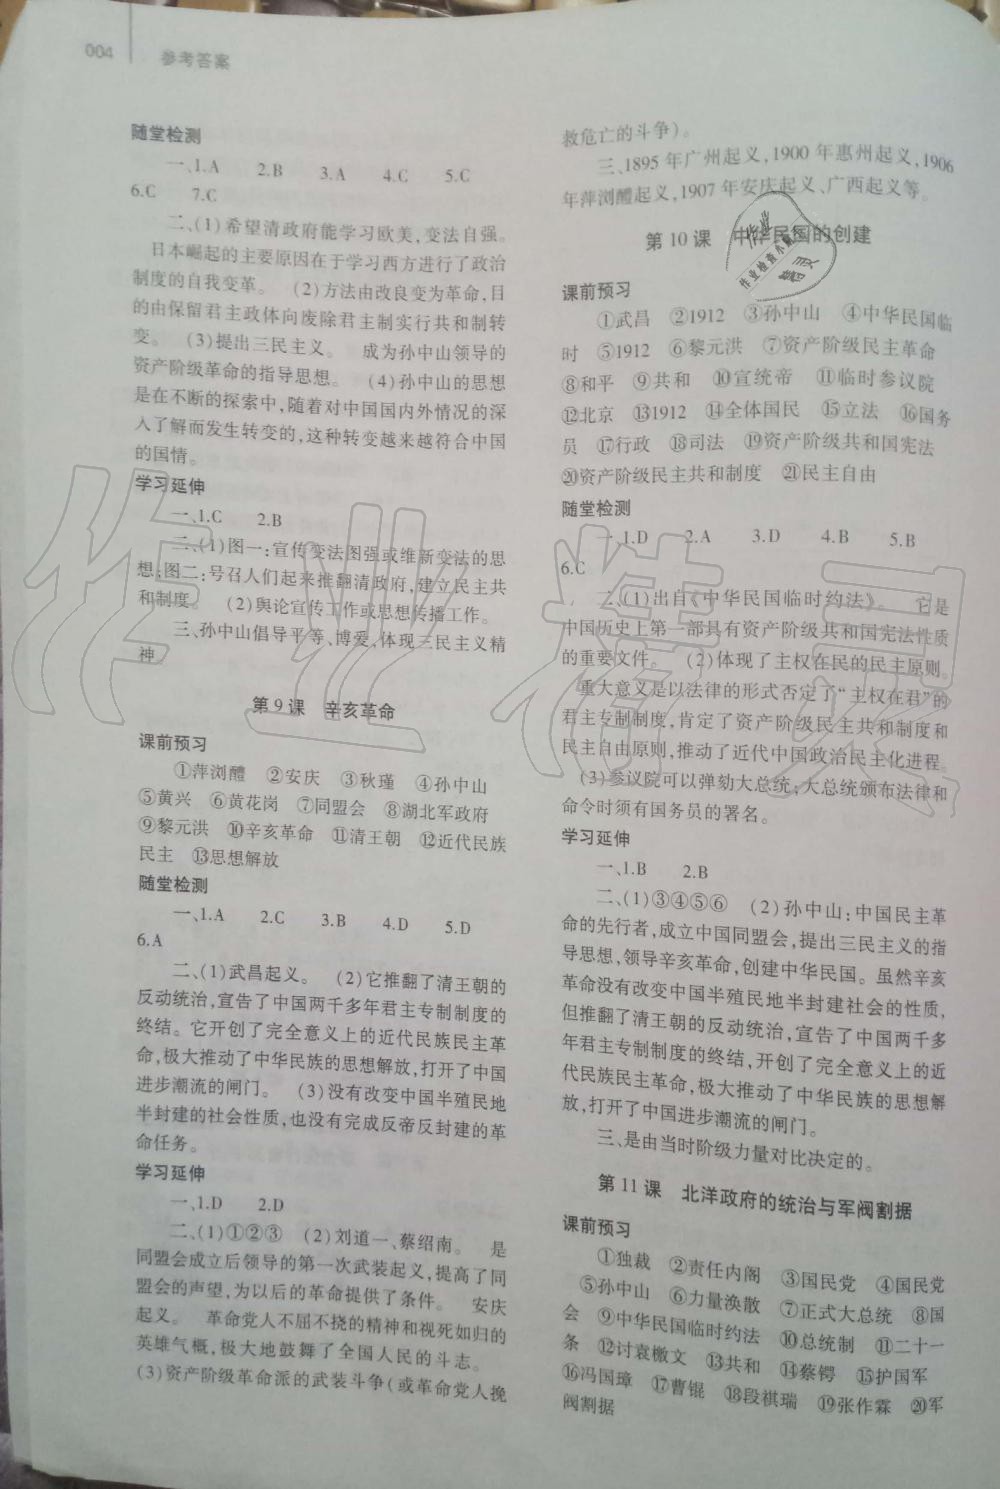 004 参考答案
随堂检测
一、1.A 2.B 3.A 4.C 5.C
6.C 7.C
二、(1)希望清政府能学习欧美,变法自强。
日本崛起的主要原因在于学习西方进行了政治
制度的自我变革。 (2)方法由改良变为革命,目
的由保留君主政体向废除君主制实行共和制转
变。 (3)提出三民主义。 成为孙中山领导的
资产阶级革命的指导思想。 (4)孙中山的思想
是在不断的探索中,随着对中国国内外情况的深
入了解而发生转变的,这种转变越来越符合中国
的国情。
学习延伸
一、1.C 2.B
二、(1)图一:宣传变法图强或维新变法的思
想;图二:号召人们起来推翻清政府,建立民主共
和制度。 (2)舆论宣传工作或思想传播工作。
三、孙中山倡导平等、博爱,体现三民主义精
神。
第9课 辛亥革命
课前预习
①萍浏醴 ②安庆 ③秋瑾 ④孙中山
⑤黄兴 ⑥黄花岗 ⑦同盟会 ⑧湖北军政府
⑨黎元洪 ⑩辛亥革命 ⑪清王朝 ⑫近代民族
民主 ⑬思想解放
随堂检测
一、1.A 2.C 3.B 4.D 5.D
6.A
二、(1)武昌起义。 (2)它推翻了清王朝的
反动统治,宣告了中国两千多年君主专制制度的
终结。它开创了完全意义上的近代民族民主革
命,极大推动了中华民族的思想解放,打开了中国
进步潮流的闸门。 (3)没有改变中国半殖民地
半封建的社会性质,也没有完成反帝反封建的革
命任务。
学习延伸
一、1.D 2.D
二、(1)①②③ (2)刘道一、蔡绍南。 是
同盟会成立后领导的第一次武装起义,提高了同
盟会的声望,为以后的革命提供了条件。 安庆
起义。 革命党人不屈不挠的精神和视死如归的
英雄气概,极大地鼓舞了全国人民的斗志。
(3)资产阶级革命派的武装斗争(或革命党人挽
救危亡的斗争)。
三、1895年广州起义,1900年惠州起义,1906
年萍浏醴起义,1907年安庆起义、广西起义等。
第10课 中华民国的创建
课前预习
①武昌 ②1912 ③孙中山 ④中华民国临
时 ⑤1912 ⑥黎元洪 ⑦资产阶级民主革命
⑧和平 ⑨共和 ⑩宣统帝 ⑪临时参议院
⑫北京 ⑬1912 ⑭全体国民 ⑮立法 ⑯国务
员 ⑰行政 ⑱司法 ⑲资产阶级共和国宪法
⑳资产阶级民主共和制度 ㉑民主自由
随堂检测
一、1.D 2.A 3.D 4.B 5.B
6.C
二、(1)出自《中华民国临时约法》。 它是
中国历史上第一部具有资产阶级共和国宪法性质
的重要文件。 (2)体现了主权在民的民主原则。
重大意义是以法律的形式否定了“主权在君”的
君主专制制度,肯定了资产阶级民主共和制度和
民主自由原则,推动了近代中国政治民主化进程。
(3)参议院可以弹劾大总统;大总统颁布法律和
命令时须有国务员的署名。
学习延伸
一、1.B 2.B
二、(1)③④⑤⑥ (2)孙中山:中国民主革
命的先行者,成立中国同盟会,提出三民主义的指
导思想,领导辛亥革命,创建中华民国。虽然辛亥
革命没有改变中国半殖民地半封建社会的性质,
但推翻了清王朝的反动统治,宣告了中国两千多
年君主专制制度的终结,开创了完全意义上的近
代民族民主革命,极大推动了中华民族的思想解
放,打开了中国进步潮流的闸门。
三、是由当时阶级力量对比决定的。
第11课 北洋政府的统治与军阀割据
课前预习
①独裁 ②责任内阁 ③国民党 ④国民党
⑤孙中山 ⑥力量涣散 ⑦正式大总统 ⑧国
会 ⑨中华民国临时约法 ⑩总统制 ⑪二十一
条 ⑫讨袁檄文 ⑬共和 ⑭蔡锷 ⑮护国军
⑯冯国璋 ⑰曹锟 ⑱段祺瑞 ⑲张作霖 ⑳军
阀割据
作业精灵